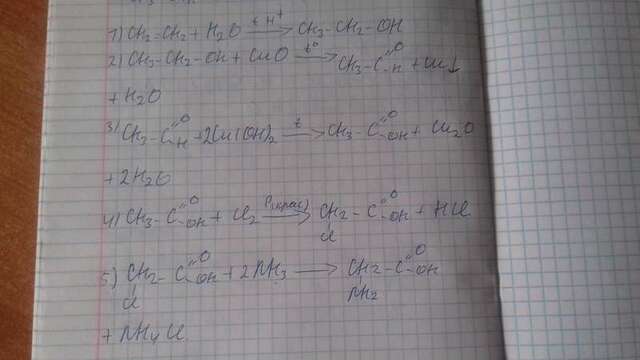 1) CH₂=CH₂ + H₂O —t, H⁺→ CH₃-CH₂-OH
2) CH₃-CH₂-OH + CuO —t°→ CH₃-C(=O)-H + Cu↓
+ H₂O
3) CH₃-C(=O)-H + 2Cu(OH)₂ —t→ CH₃-C(=O)-OH + Cu₂O
+ 2H₂O
4) CH₃-C(=O)-OH + Cl₂ —P(крас)→ CH₂(Cl)-C(=O)-OH + HCl
5) CH₂(Cl)-C(=O)-OH + 2NH₃ → CH₂(NH₂)-C(=O)-OH
+ NH₄Cl